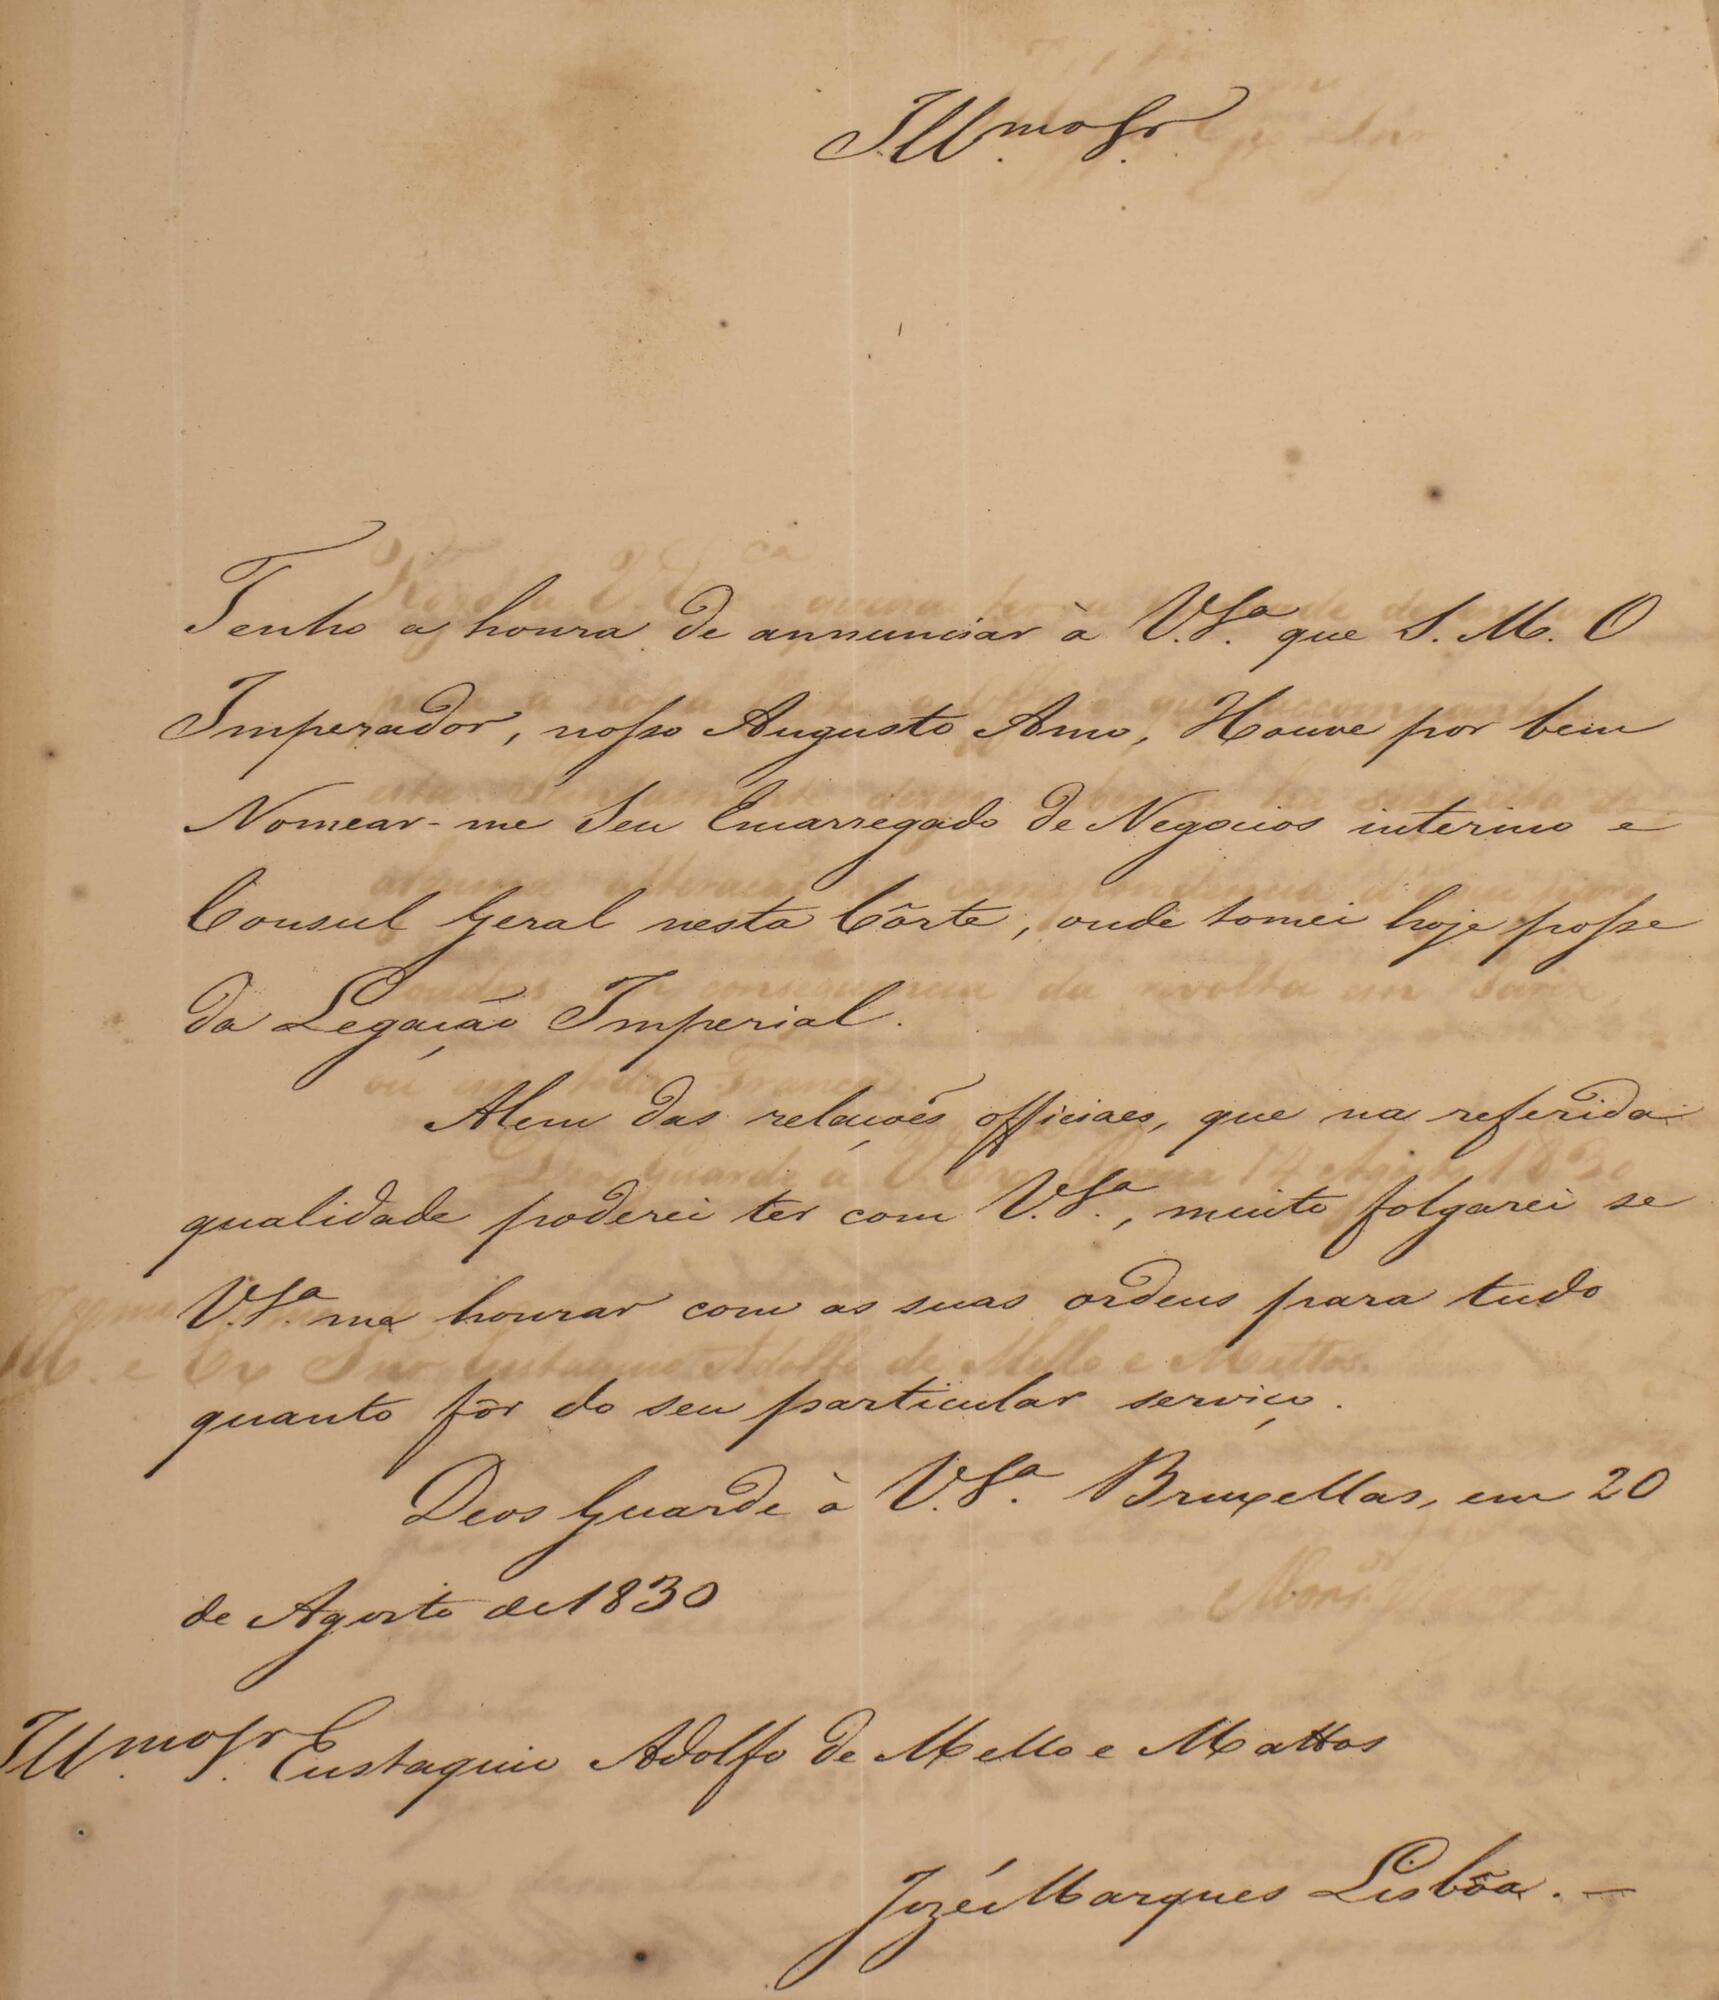 Illmo. Sr.
Tenho a honra de annunciar à V.Sa. que S. M. O
Imperador, nosso Augusto Amo, Houve por bem
Nomear-me Seu Encarregado de Negocios interino e
Consul Geral nesta Côrte, onde tomei hoje posse
da Legação Imperial.
Alem das relações officiaes, que na referida
qualidade poderei ter com V.Sa., muito folgarei se
V.Sa. me honrar com as suas ordens para tudo
quanto fôr do seu particular serviço.
Deos Guarde à V.Sa. Bruxellas, em 20
de Agosto de 1830
Illmo. Sr. Eustaquio Adolfo de Mello e Mattos
Jozé Marques Lisbôa. —